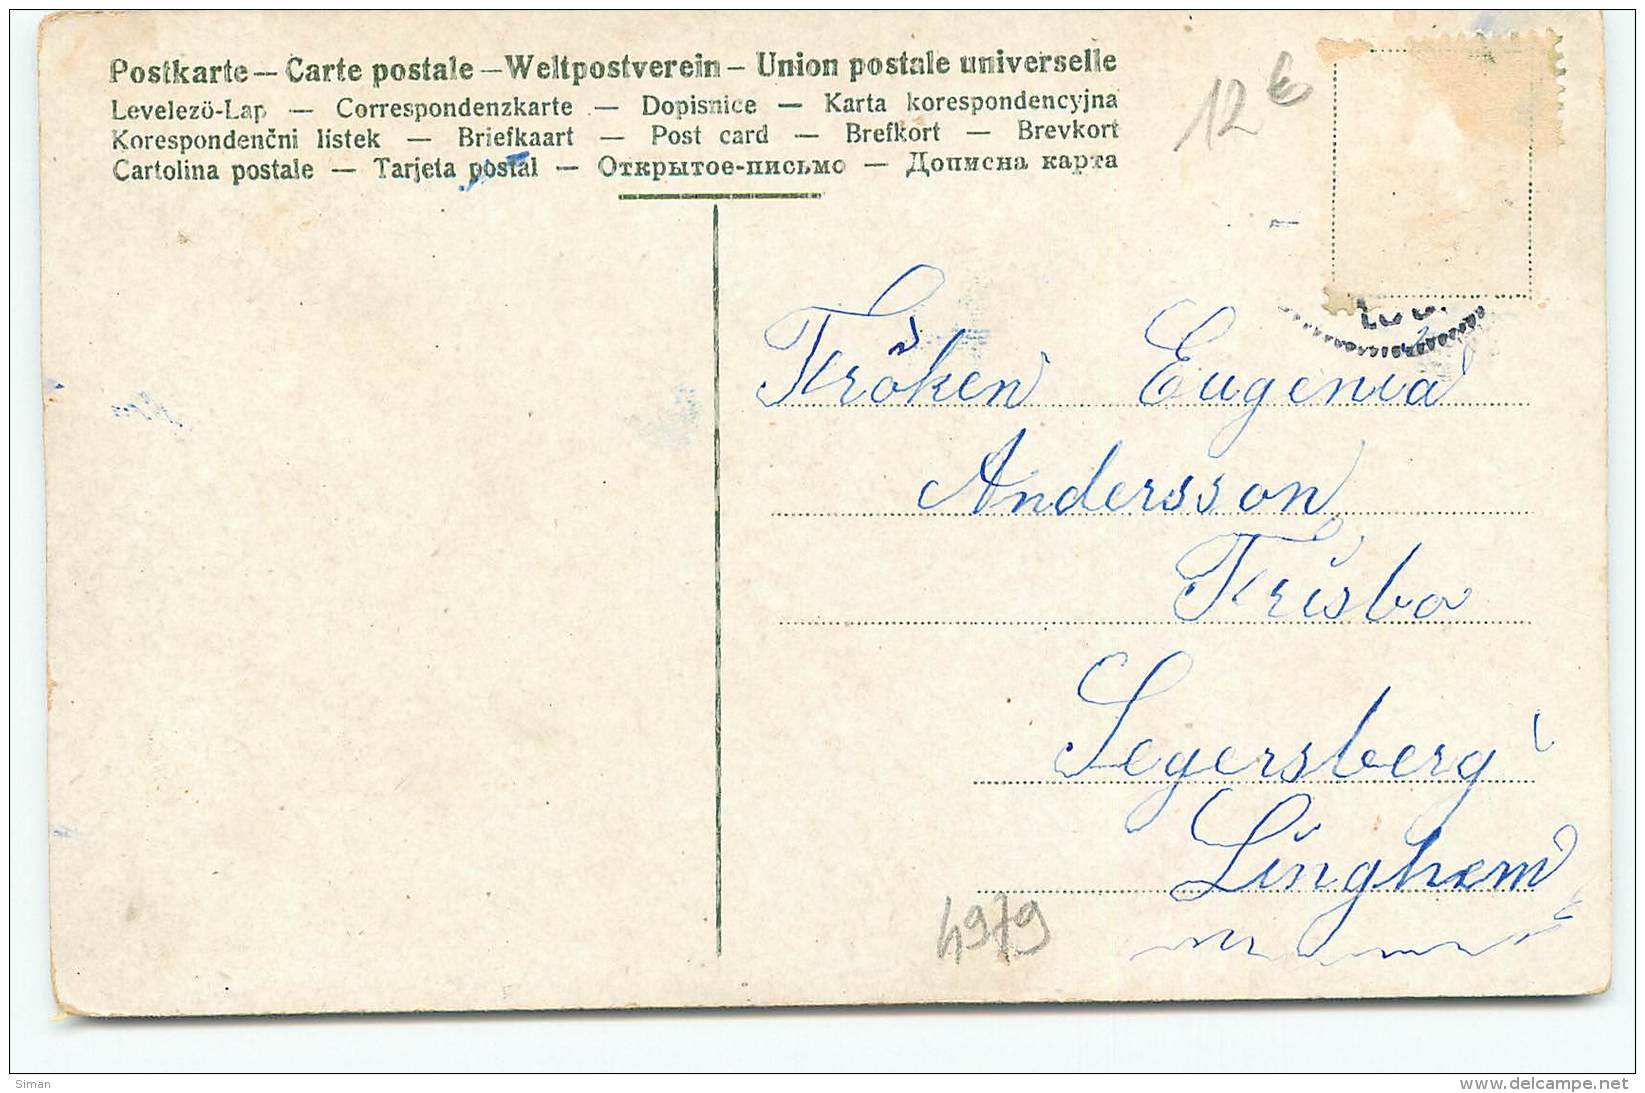 Postkarte — Carte postale — Weltpostverein — Union postale universelle
Levelezö-Lap — Correspondenzkarte — Dopisnice — Karta korespondencyjna
Korespondenčni listek — Briefkaart — Post card — Brefkort — Brevkort
Cartolina postale — Tarjeta postal — Открытое-письмо — Дописна карта
12 €
Fröken Eugenia
Andersson
Frisbo
Segersberg
Linghem
4979
Siman
www.delcampe.net